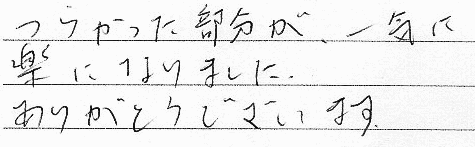 つらかった部分が、一気に
楽になりました.
ありがとうございます.